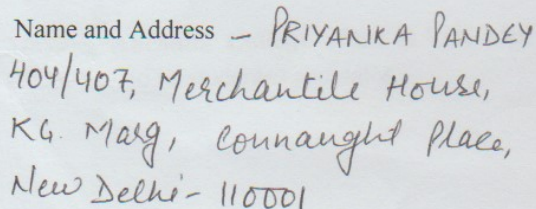 Name and Address - PRIYANKA PANDEY
404/407, Merchantile House,
KG. Marg, Connaught Place,
New Delhi - 110001